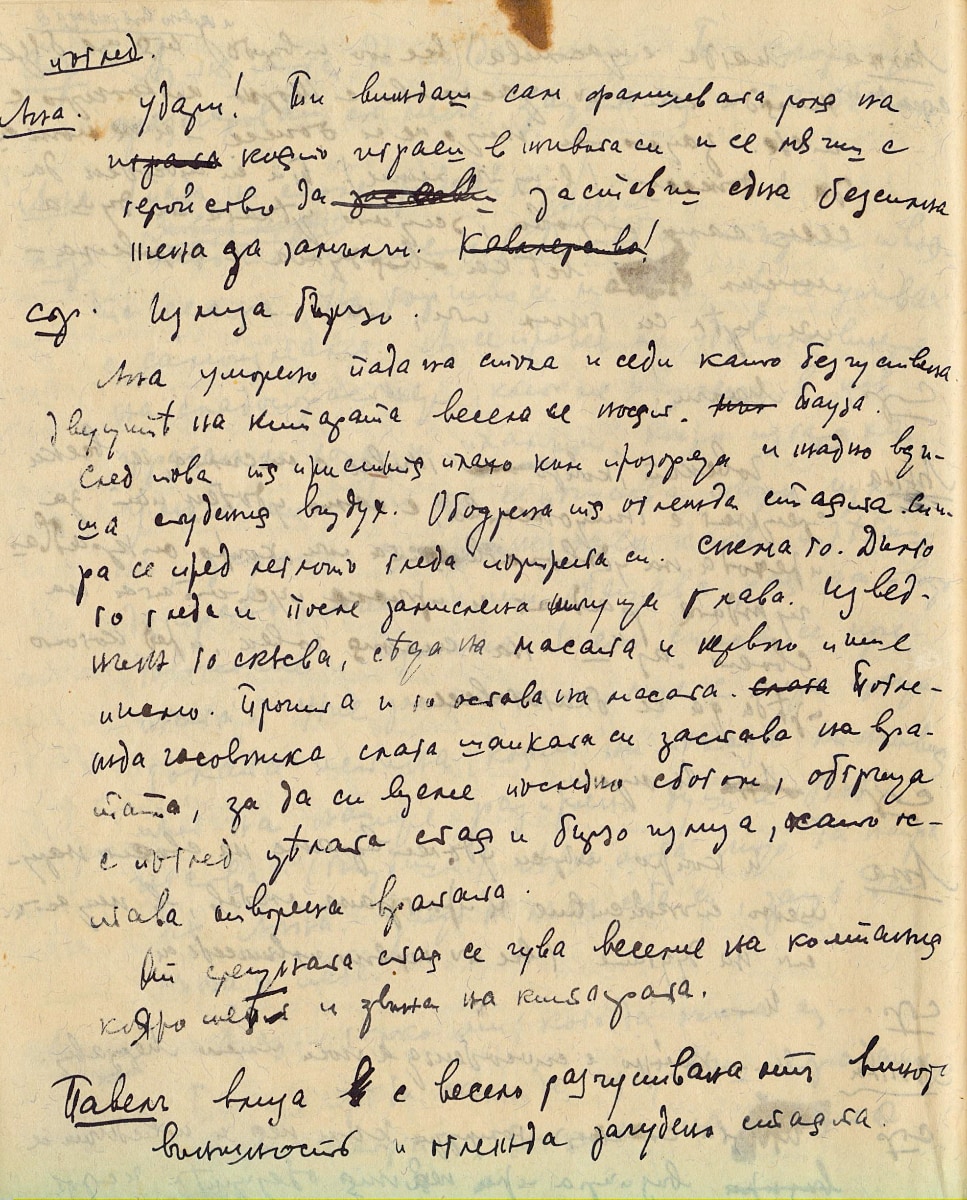 поглед.
Ана. Удари! Ти виждаш сам фалшивата роля на
играта която играеш в живота си и се мъчиш с
геройство да заставиш една безсилна
жена да замълчи. Кавалерство!
Сор. Излиза бързо.
Ана уморено пада на стола и седи като безчувствена.
на китарата весела се носят. Пауза.
След това тя пристъпя плахо към прозореца и жадно вди-
ша студения въздух. Ободрена тя оглежда стаята. Спи-
ра се пред леглото гледа портрета си. Снема го. Дълго
го гледа и после замислена глава. Извед-
нъж го скъсва, сѣда на масата и нервно пише
писмо. Прочита и го оставя на масата. слага Погле-
жда часовника слага шапката си застава на вра-
тата, за да си вземе последно сбогом, обгръща
с поглед цѣлата стая и бързо излиза, като о-
ставя отворена вратата.
От срещната стая се чува веселие на компания
която и звъна на китарата.
Павелъ влиза с весело разчувствана отъ виното
външность и оглежда зачудено стаята.